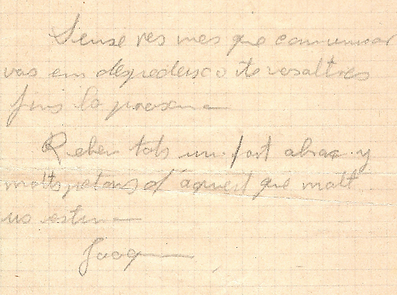 Sense res mes que comunicar
vos em despedeisc de vosaltres
fins la proxima
Rebeu tots un fort abraç y
molts petons d'aqueit que molt
us estima
Joaq